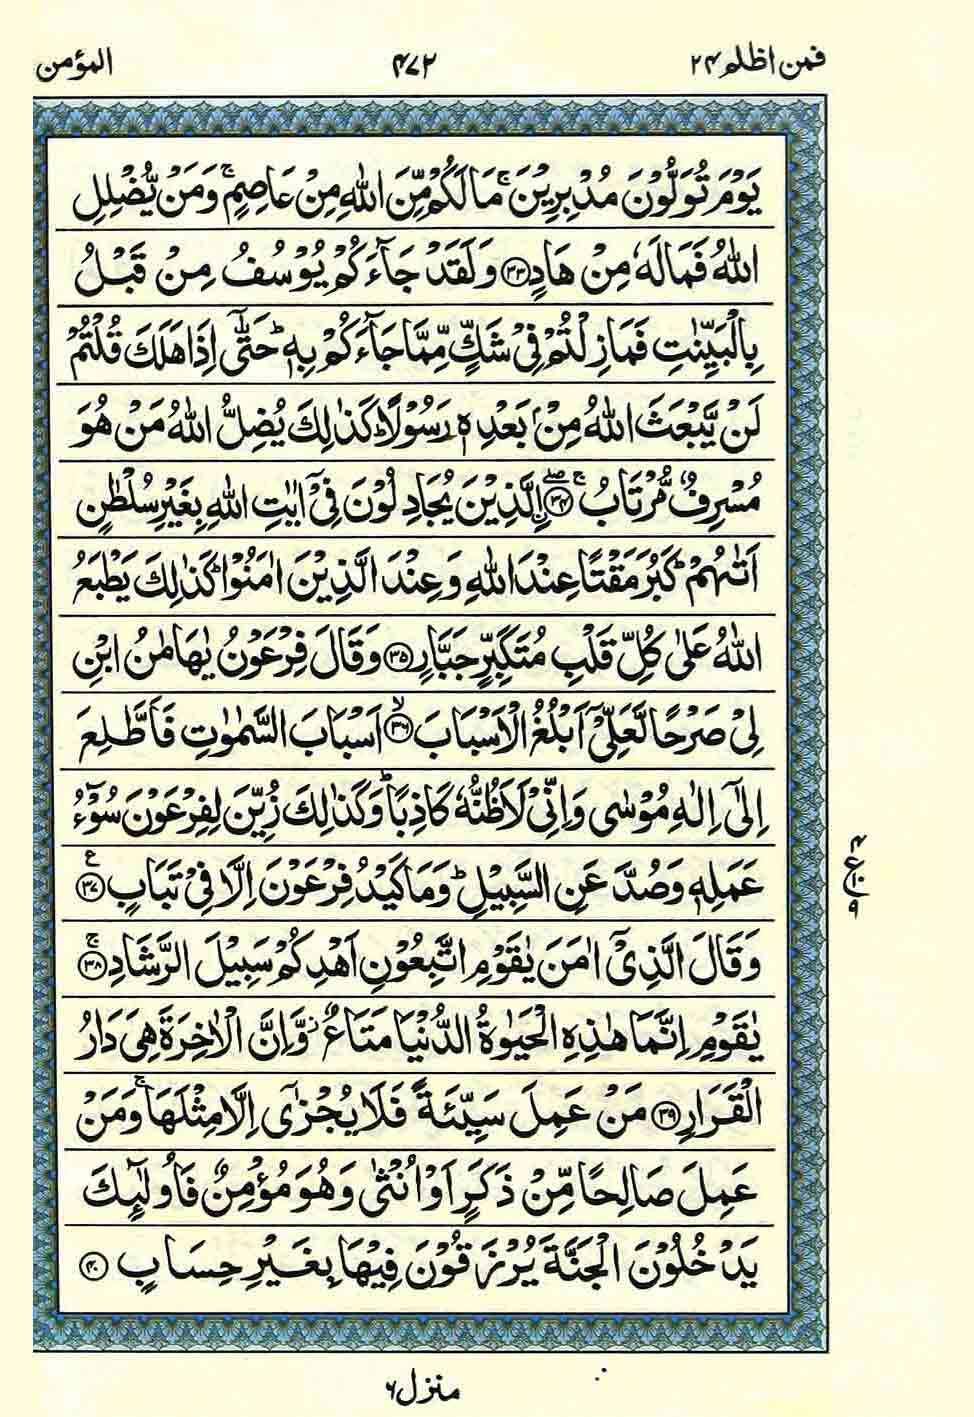 فمن اظلم ٢٤
٤٧٢
المؤمن
يَوْمَ تُوَلُّوْنَ مُدْبِرِيْنَ ۚ مَا لَكُمْ مِّنَ اللّٰهِ مِنْ عَاصِمٍ ۚ وَمَنْ يُّضْلِلِ
اللّٰهُ فَمَا لَهٗ مِنْ هَادٍ ﴿٣٣﴾ وَلَقَدْ جَآءَكُمْ يُوْسُفُ مِنْ قَبْلُ
بِالْبَيِّنٰتِ فَمَا زِلْتُمْ فِيْ شَكٍّ مِّمَّا جَآءَكُمْ بِهٖ ؕ حَتّٰٓى اِذَا هَلَكَ قُلْتُمْ
لَنْ يَّبْعَثَ اللّٰهُ مِنْۢ بَعْدِهٖ رَسُوْلًا ؕ كَذٰلِكَ يُضِلُّ اللّٰهُ مَنْ هُوَ
مُسْرِفٌ مُّرْتَابُ ۚۖ ﴿٣٤﴾ اِلَّذِيْنَ يُجَادِلُوْنَ فِيْٓ اٰيٰتِ اللّٰهِ بِغَيْرِ سُلْطٰنٍ
اَتٰىهُمْ ؕ كَبُرَ مَقْتًا عِنْدَ اللّٰهِ وَعِنْدَ الَّذِيْنَ اٰمَنُوْا ؕ كَذٰلِكَ يَطْبَعُ
اللّٰهُ عَلٰى كُلِّ قَلْبِ مُتَكَبِّرٍ جَبَّارٍ ﴿٣٥﴾ وَقَالَ فِرْعَوْنُ يٰهَامٰنُ ابْنِ
لِيْ صَرْحًا لَّعَلِّيْٓ اَبْلُغُ الْاَسْبَابَ ۙ ﴿٣٦﴾ اَسْبَابَ السَّمٰوٰتِ فَاَطَّلِعَ
اِلٰٓى اِلٰهِ مُوْسٰى وَاِنِّيْ لَاَظُنُّهٗ كَاذِبًا ؕ وَكَذٰلِكَ زُيِّنَ لِفِرْعَوْنَ سُوْٓءُ
عَمَلِهٖ وَصُدَّ عَنِ السَّبِيْلِ ؕ وَمَا كَيْدُ فِرْعَوْنَ اِلَّا فِيْ تَبَابٍ ﴿٣٧﴾ ع
٤
ع ١٠
٩
وَقَالَ الَّذِيْٓ اٰمَنَ يٰقَوْمِ اتَّبِعُوْنِ اَهْدِكُمْ سَبِيْلَ الرَّشَادِ ۚ ﴿٣٨﴾
يٰقَوْمِ اِنَّمَا هٰذِهِ الْحَيٰوةُ الدُّنْيَا مَتَاعٌ ؗ وَّاِنَّ الْاٰخِرَةَ هِيَ دَارُ
الْقَرَارِ ﴿٣٩﴾ مَنْ عَمِلَ سَيِّئَةً فَلَا يُجْزٰٓى اِلَّا مِثْلَهَا ۚ وَمَنْ
عَمِلَ صَالِحًا مِّنْ ذَكَرٍ اَوْ اُنْثٰى وَهُوَ مُؤْمِنٌ فَاُولٰٓئِكَ
يَدْخُلُوْنَ الْجَنَّةَ يُرْزَقُوْنَ فِيْهَا بِغَيْرِ حِسَابٍ ﴿٤٠﴾
منزل ٦